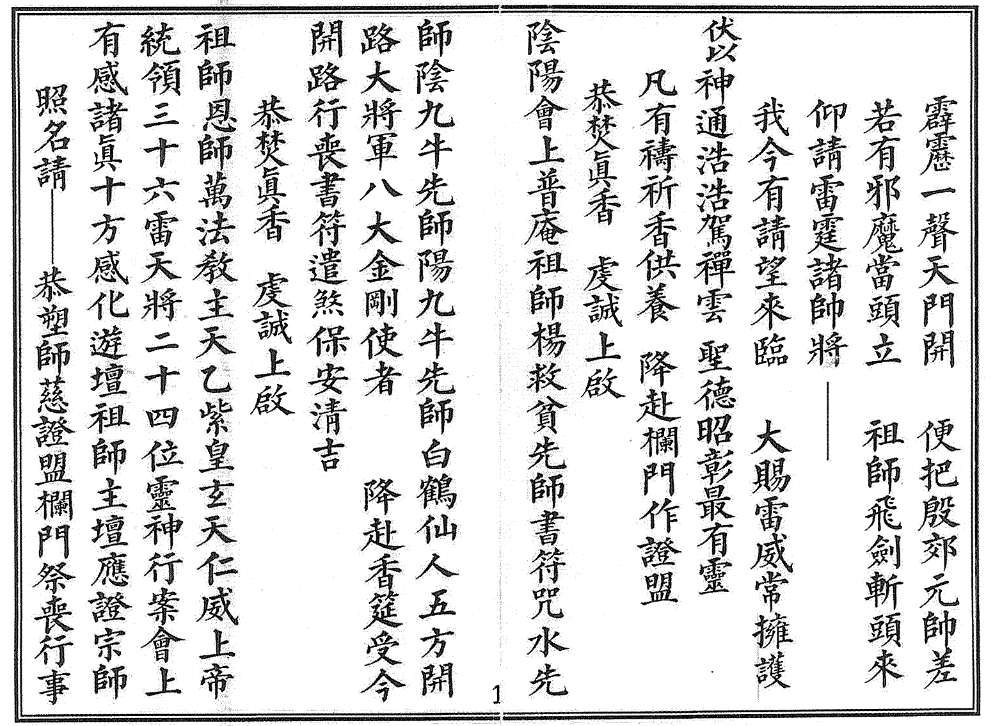 霹靂一聲天門開　便把殷郊元帥差
若有邪魔當頭立　祖師飛劍斬頭來
仰請雷霆諸帥將——
我今有請望來臨　大賜雷威常擁護
伏以神通浩浩駕禪雲　聖德昭彰最有靈
凡有禱祈香供養　降赴欄門作證盟
恭焚眞香　虔誠上啟
陰陽會上普庵祖師楊救貧先師書符咒水先
1
師陰九牛先師陽九牛先師白鶴仙人五方開
路大將軍八大金剛使者　降赴香筵受今
開路行喪書符遣煞保安清吉
恭焚眞香　虔誠上啟
祖師恩師萬法教主天乙紫皇玄天仁威上帝
統領三十六雷天將二十四位靈神行案會上
有感諸眞十方感化遊壇祖師主壇應證宗師
照名請——恭塑師慈證盟欄門祭喪行事